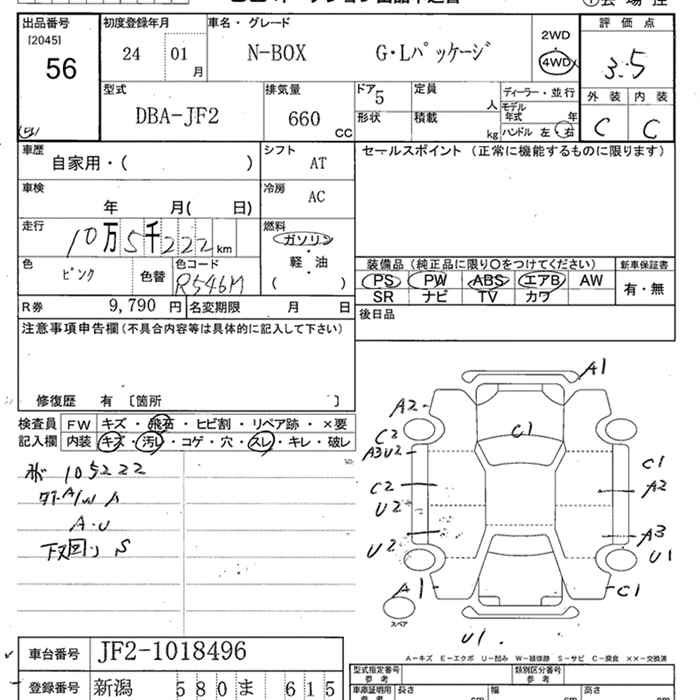 出品番号 初度登録年月 車名・グレード 評価点
[2045] 24 01 月 N-BOX G・Lパッケージ 2WD 4WD 3.5
56
型式 排気量 ドア 5 定員 人 ディーラー・並行 外装 内装
DBA-JF2 660 CC 形状 積載 kg モデル年式 年 C C
ハンドル 左 右
車歴 シフト セールスポイント (正常に機能するものに限ります)
自家用・( ) AT
車検 冷房
年 月( 日) AC
走行 燃料
10万5千222km ガソリン
軽・油
( )
色 ピンク 色替 色コード R546M
装備品 (純正品に限り〇をつけてください) 新車保証書
PS PW ABS エアB AW 有・無
SR ナビ TV カワ
R券 9,790 円 名変期限 月 日 後日品
注意事項申告欄(不具合内容等は具体的に記入して下さい)
修復歴 有 〔箇所 〕
検査員 FW キズ・飛石・ヒビ割・リペア跡・×要
記入欄 内装 キズ・汚レ・コゲ・穴・スレ・キレ・破レ
105222
A・U
下回り S
A1
A2
C2 C1
A3U2 C1
C2 A2
U2
U2 A3
U1
A1 C1
スペア
U1.
A-キズ E-エクボ U-凹み W-補修跡 S-サビ C-腐食 ××-交換済
車台番号 JF2-1018496
登録番号 新潟 580 ま 615
型式指定番号 参考 類別区分番号 参考
車庫証明用 参考 長さ 幅 高さ